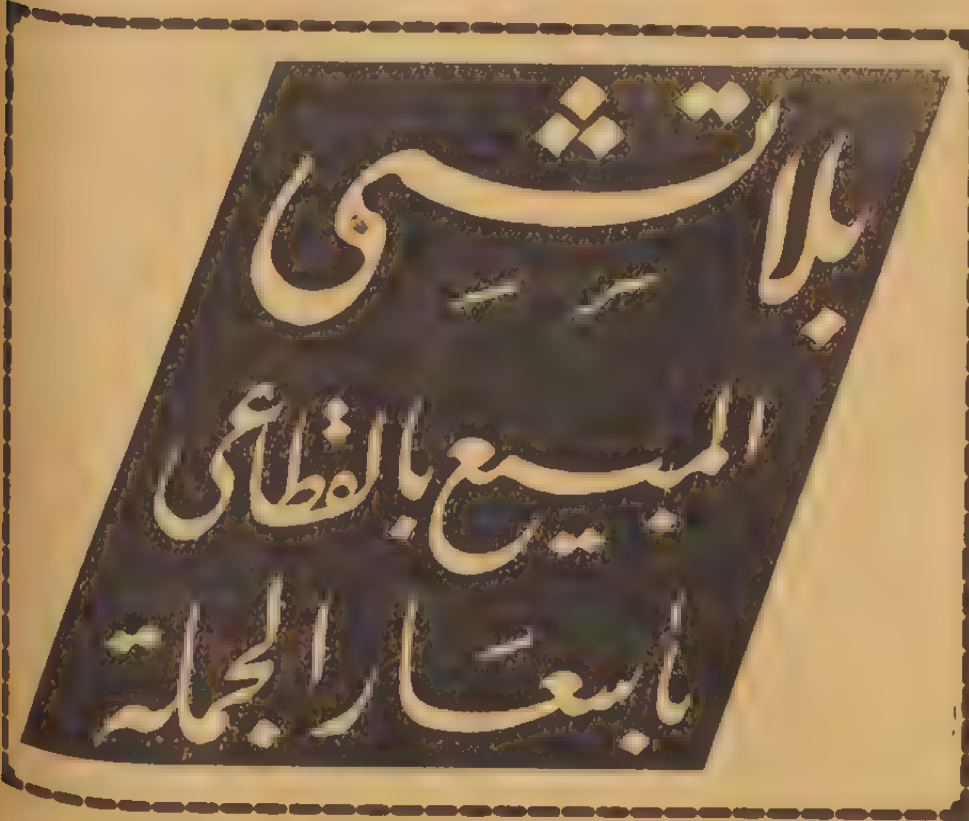 بلاتشى
المبيع بالقطاعى
باسعار الجملة